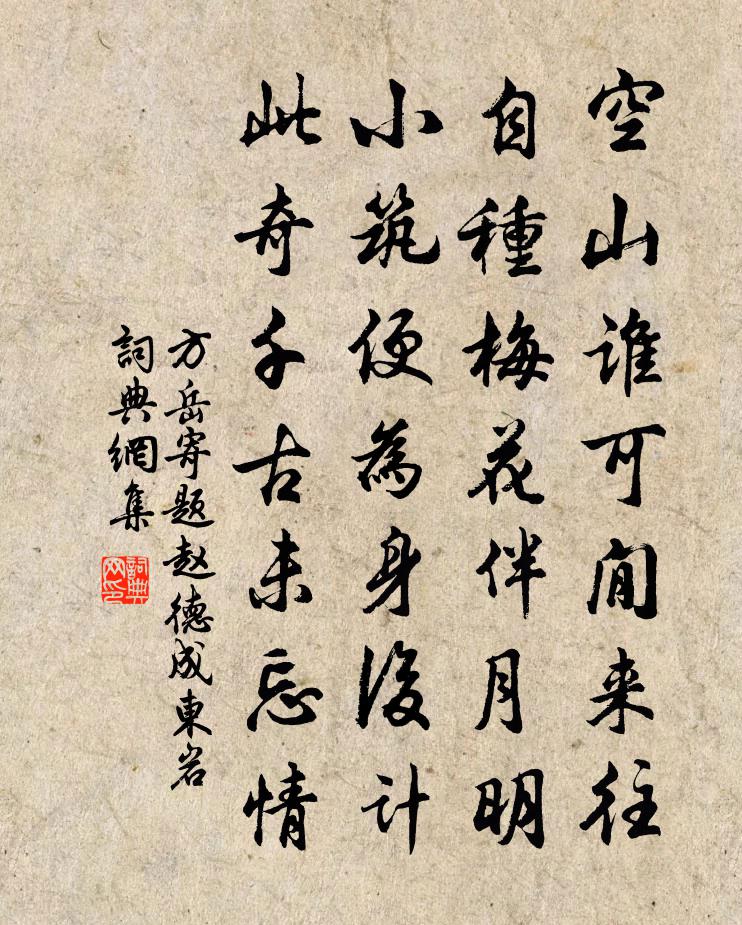 空山谁可閒来往
自種梅花伴月明
小筑便為身後计
此奇千古未忘情
方岳寄题赵德成東岩
詞典網集
詞典網印